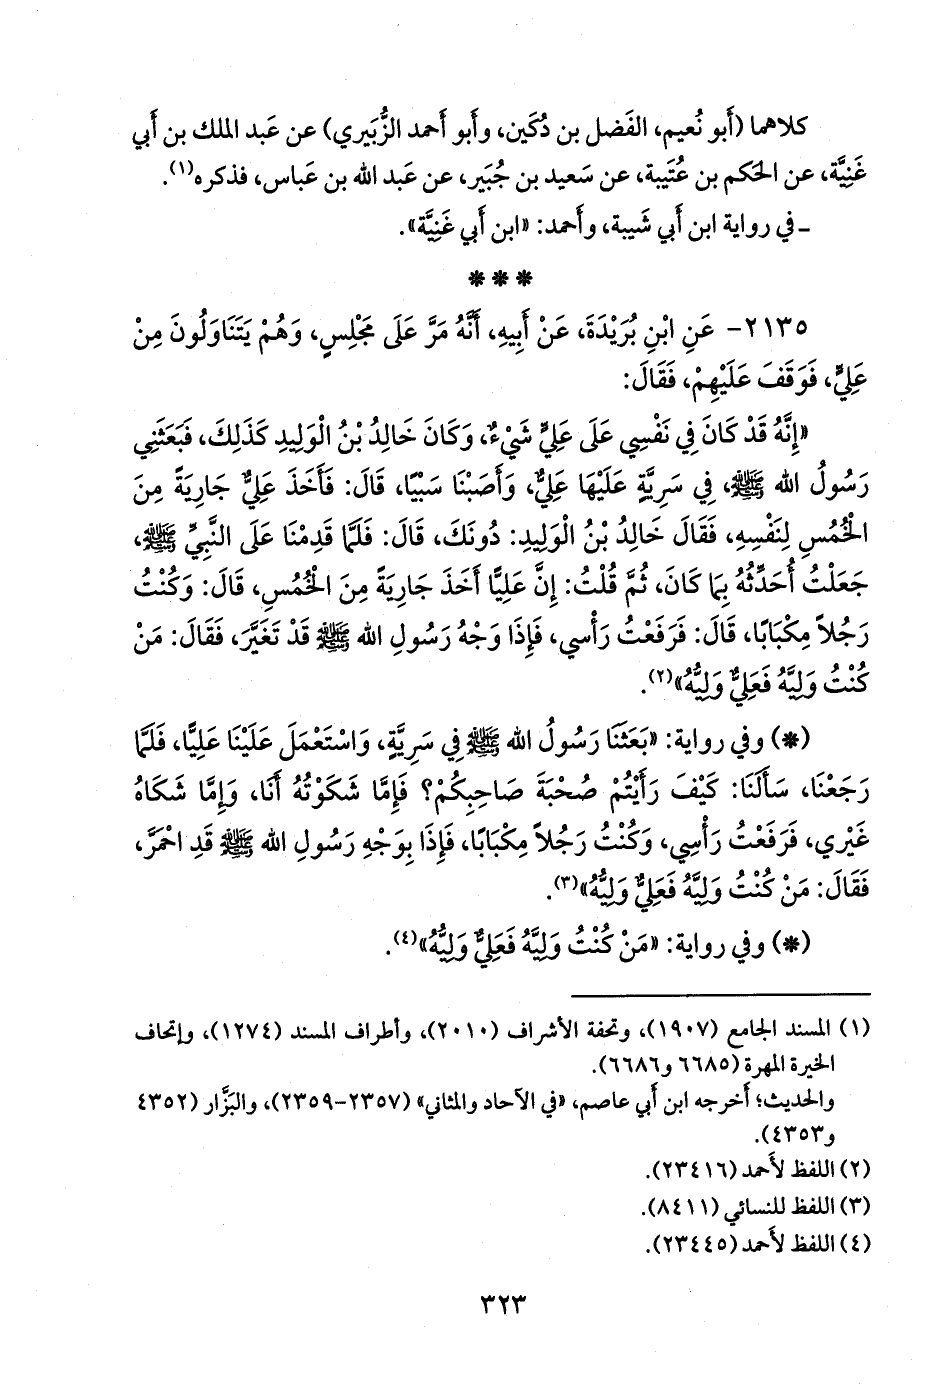 كلاهما (أَبو نُعيم، الفَضل بن دُكَين، وأَبو أَحمد الزُّبَيري) عن عَبد الملك بن أَبي
غَنِيَّة، عن الحَكم بن عُتَيبة، عن سَعيد بن جُبَير، عن عَبد الله بن عَباس، فذكره(١).
ـ في رواية ابن أَبي شَيبة، وأَحمد: «ابن أَبي غَنِيَّة».
* * *
٢١٣٥- عَنِ ابْنِ بُرَيْدَةَ، عَنْ أَبِيهِ، أَنَّهُ مَرَّ عَلَى مَجْلِسٍ، وَهُمْ يَتَنَاوَلُونَ مِنْ
عَلِيٍّ، فَوَقَفَ عَلَيْهِمْ، فَقَالَ:
«إِنَّهُ قَدْ كَانَ فِي نَفْسِي عَلَى عَلِيٍّ شَيْءٌ، وَكَانَ خَالِدُ بْنُ الْوَلِيدِ كَذَلِكَ، فَبَعَثَنِي
رَسُولُ الله ﷺ، فِي سَرِيَّةٍ عَلَيْهَا عَلِيٌّ، وَأَصَبْنَا سَبْيًا، قَالَ: فَأَخَذَ عَلِيٌّ جَارِيَةً مِنَ
الْخُمُسِ لِنَفْسِهِ، فَقَالَ خَالِدُ بْنُ الْوَلِيدِ: دُونَكَ، قَالَ: فَلَمَّا قَدِمْنَا عَلَى النَّبِيِّ ﷺ،
جَعَلْتُ أُحَدِّثُهُ بِمَا كَانَ، ثُمَّ قُلْتُ: إِنَّ عَلِيًّا أَخَذَ جَارِيَةً مِنَ الْخُمُسِ، قَالَ: وَكُنْتُ
رَجُلاً مِكْبَابًا، قَالَ: فَرَفَعْتُ رَأْسِي، فَإِذَا وَجْهُ رَسُولِ الله ﷺ قَدْ تَغَيَّرَ، فَقَالَ: مَنْ
كُنْتُ وَلِيَّهُ فَعَلِيٌّ وَلِيُّهُ»(٢).
(*) وفي رواية: «بَعَثَنَا رَسُولُ الله ﷺ فِي سَرِيَّةٍ، وَاسْتَعْمَلَ عَلَيْنَا عَلِيًّا، فَلَمَّا
رَجَعْنَا، سَأَلَنَا: كَيْفَ رَأَيْتُمْ صُحْبَةَ صَاحِبِكُمْ؟ فَإِمَّا شَكَوْتُهُ أَنَا، وَإِمَّا شَكَاهُ
غَيْرِي، فَرَفَعْتُ رَأْسِي، وَكُنْتُ رَجُلاً مِكْبَابًا، فَإِذَا بِوَجْهِ رَسُولِ الله ﷺ قَدِ احْمَرَّ،
فَقَالَ: مَنْ كُنْتُ وَلِيَّهُ فَعَلِيٌّ وَلِيُّهُ»(٣).
(*) وفي رواية: «مَنْ كُنْتُ وَلِيَّهُ فَعَلِيٌّ وَلِيُّهُ»(٤).
(١) المسند الجامع (١٩٠٧)، وتحفة الأشراف (٢٠١٠)، وأطراف المسند (١٢٧٤)، وإتحاف
الخيرة المهرة (٦٦٨٥ و٦٦٨٦).
والحديث؛ أَخرجه ابن أَبي عاصم، «في الآحاد والمثاني» (٢٣٥٧-٢٣٥٩)، والبَزَّار (٤٣٥٢
و٤٣٥٣).
(٢) اللفظ لأَحمد (٢٣٤١٦).
(٣) اللفظ للنسائي (٨٤١١).
(٤) اللفظ لأَحمد (٢٣٤٤٥).
٣٢٣